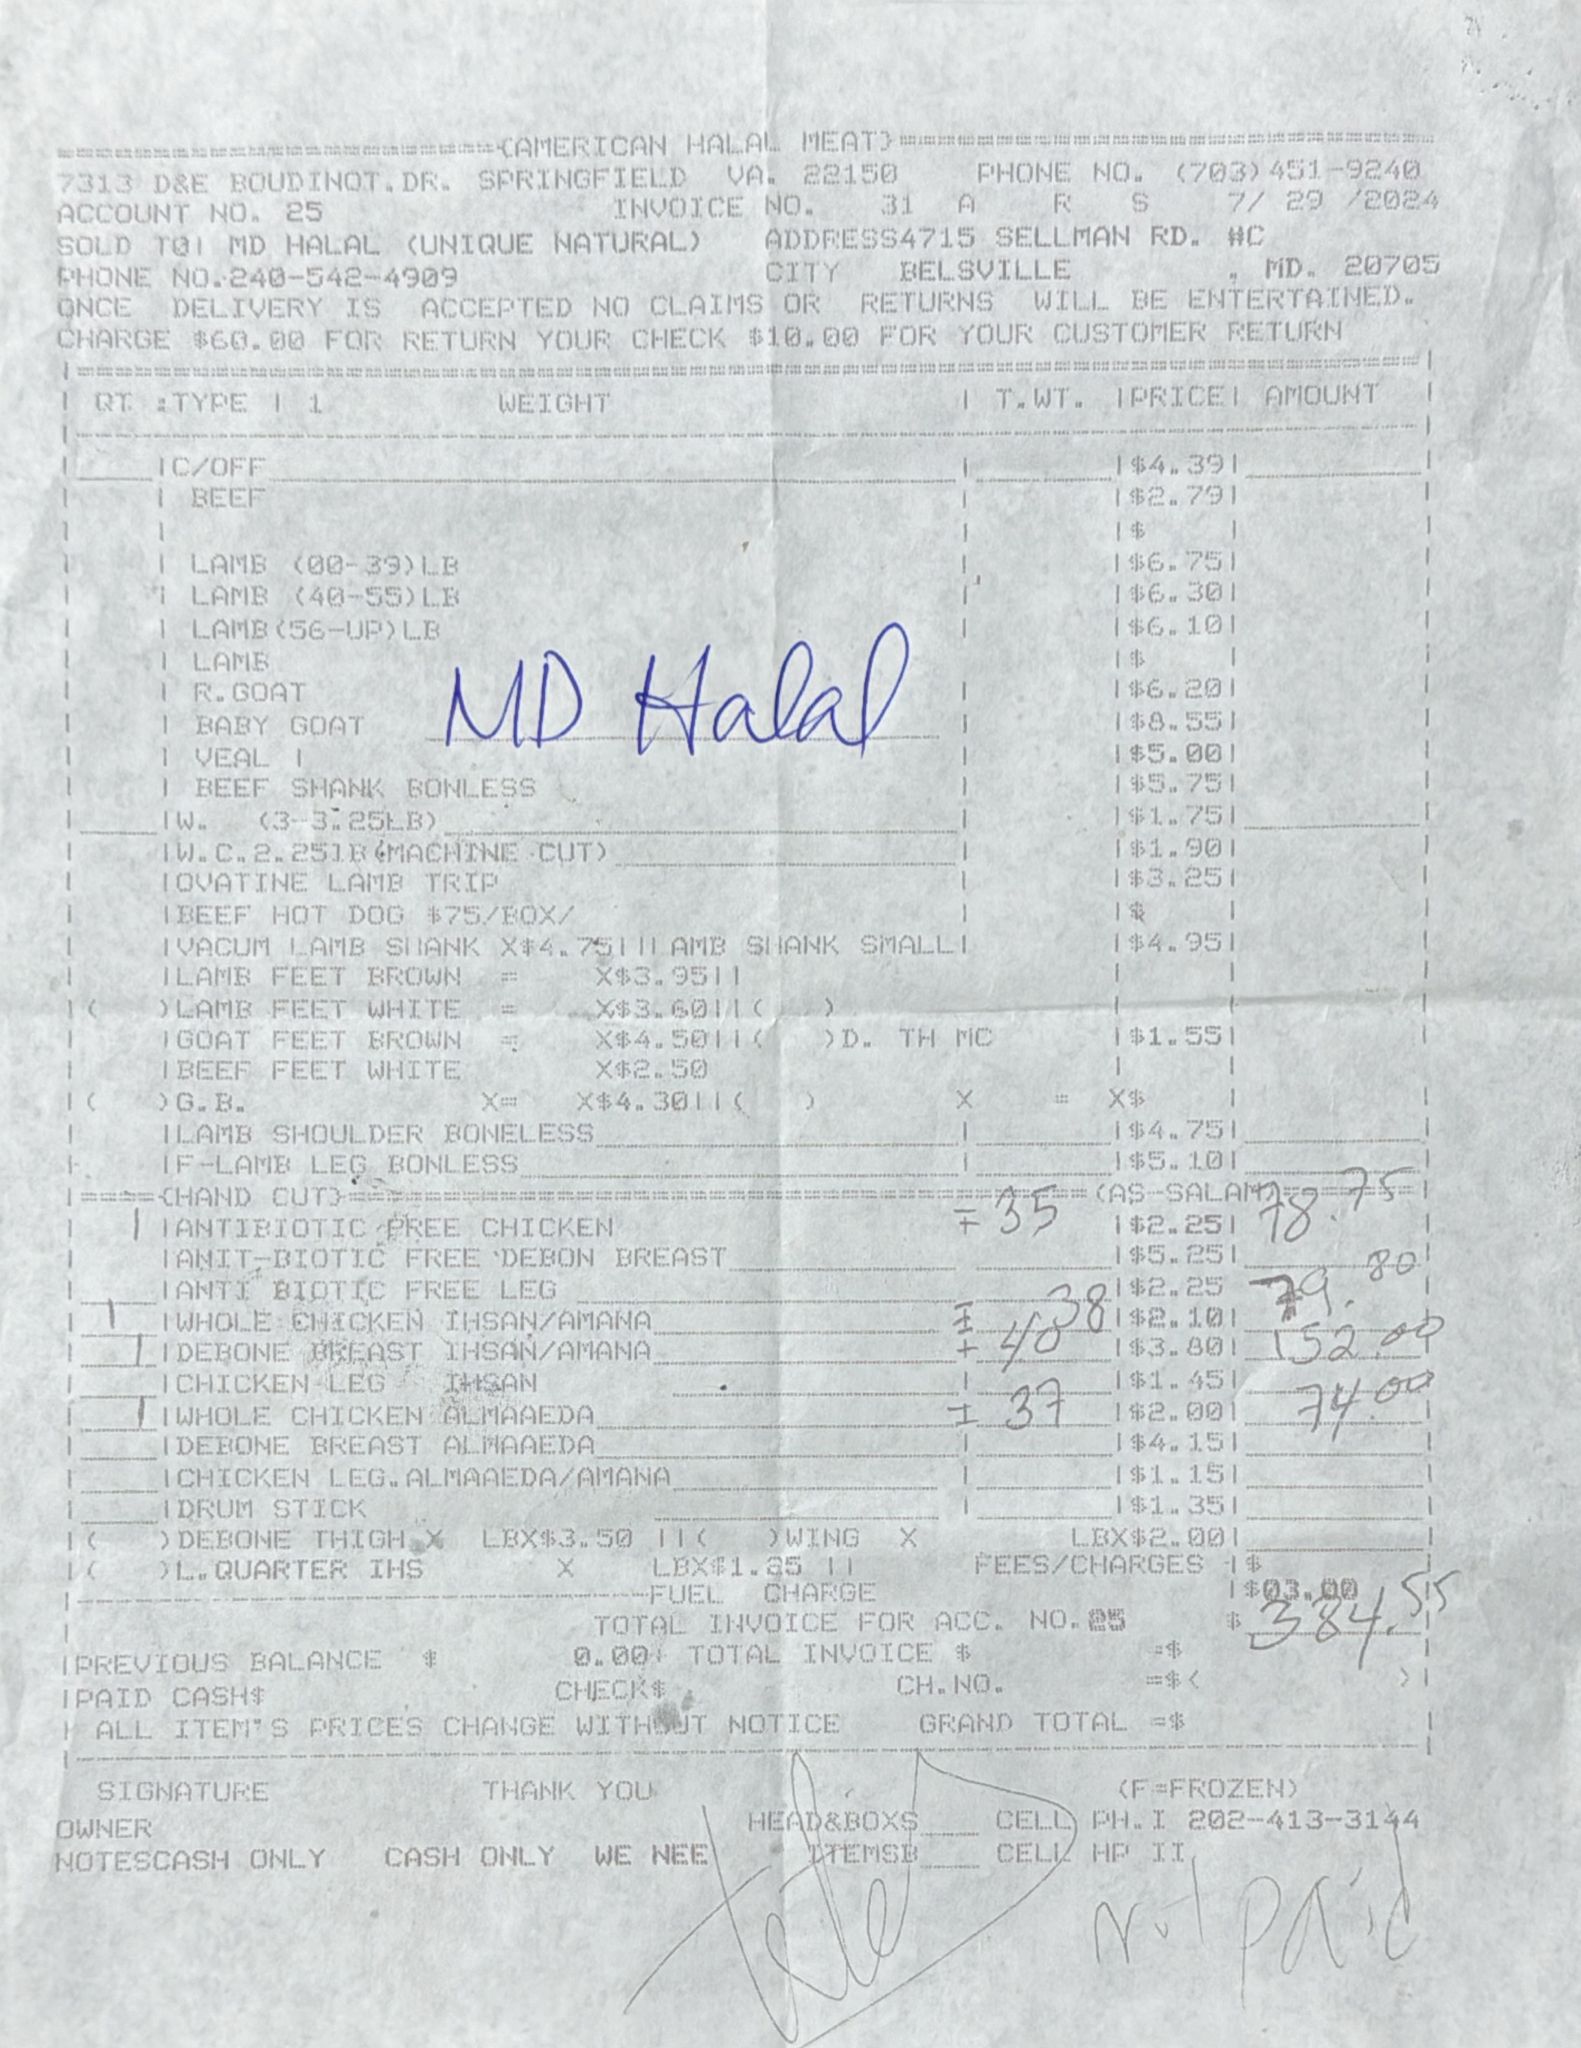 =======================(AMERICAN HALAL MEAT)============================
7313 D&E BOUDINOT.DR. SPRINGFIELD VA. 22150 PHONE NO. (703)451-9240
ACCOUNT NO. 25 INVOICE NO. 31 A R S 7/ 29 /2024
SOLD TO| MD HALAL (UNIQUE NATURAL) ADDRESS4715 SELLMAN RD. #C
PHONE NO.240-542-4909 CITY BELSVILLE , MD. 20705
ONCE DELIVERY IS ACCEPTED NO CLAIMS OR RETURNS WILL BE ENTERTAINED.
CHARGE $60.00 FOR RETURN YOUR CHECK $10.00 FOR YOUR CUSTOMER RETURN
| QT :TYPE | 1 WEIGHT | T.WT. |PRICE| AMOUNT |
|C/OFF | |$4.39|
| BEEF | |$2.79|
|$ |
| LAMB (00-39)LB | |$6.75|
| LAMB (40-55)LB | |$6.30|
| LAMB(56-UP)LB | |$6.10|
| LAMB |$ |
| R.GOAT | |$6.20|
| BABY GOAT | |$8.55|
MD Halal
| VEAL | | |$5.00|
| BEEF SHANK BONLESS |$5.75|
|W. (3-3.25LB) | |$1.75|
|W.C.2.25lB(MACHINE CUT) | |$1.90|
|OVATINE LAMB TRIP | |$3.25|
|BEEF HOT DOG $75/BOX/ | |$ |
|VACUM LAMB SHANK X$4.75||LAMB SHANK SMALL| |$4.95|
|LAMB FEET BROWN = X$3.95||
|( )LAMB FEET WHITE = X$3.60||( )
|GOAT FEET BROWN = X$4.50||( )D. TH MC |$1.55|
|BEEF FEET WHITE X$2.50
|( )G.B. X= X$4.30||( ) X = X$
|LAMB SHOULDER BONELESS | |$4.75|
|F-LAMB LEG BONLESS | |$5.10|
|====(HAND CUT)=======================================(AS-SALAM)=======|
1 |ANTIBIOTIC FREE CHICKEN = 35 |$2.25| 78.75
|ANIT-BIOTIC FREE DEBON BREAST |$5.25|
|ANTI BIOTIC FREE LEG |$2.25
1 |WHOLE CHICKEN IHSAN/AMANA = 38 |$2.10| 79.80
1 |DEBONE BREAST IHSAN/AMANA = 40 |$3.80| 152.00
|CHICKEN LEG IHSAN | |$1.45|
1 |WHOLE CHICKEN ALMAAEDA = 37 |$2.00| 74.00
|DEBONE BREAST ALMAAEDA | |$4.15|
|CHICKEN LEG.ALMAAEDA/AMANA | |$1.15|
|DRUM STICK | |$1.35|
|( )DEBONE THIGH X LBX$3.50 ||( )WING X LBX$2.00|
|( )L.QUARTER IHS X LBX$1.25 || FEES/CHARGES |$
FUEL CHARGE |$03.00
TOTAL INVOICE FOR ACC. NO.25 $ 384.55
|PREVIOUS BALANCE $ 0.00| TOTAL INVOICE $ =$
|PAID CASH$ CHECK$ CH.NO. =$( )|
| ALL ITEM'S PRICES CHANGE WITHOUT NOTICE GRAND TOTAL =$
SIGNATURE THANK YOU (F=FROZEN)
OWNER HEAD&BOXS____ CELL PH.I 202-413-3144
NOTESCASH ONLY CASH ONLY WE NEE ITEMSB____ CELL HP II
Not paid